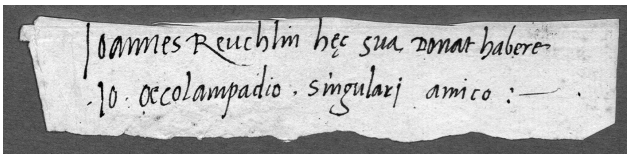 Ioannes Reuchlin hęc sua donat habere
.Io. Oecolampadio . singulari amico :—